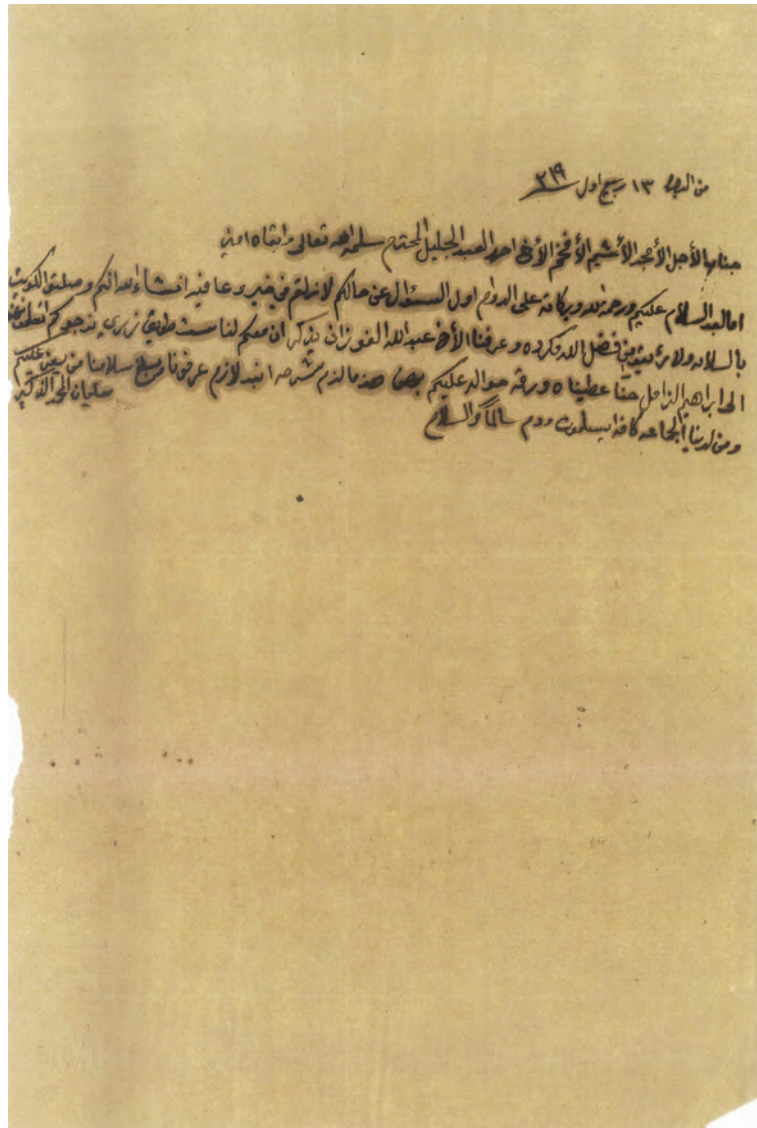 من البصرة ١٣ ربيع اول ٣١٩
جناب الأجل الأمجد الأشيم الأفخم الأخ احمد العبد الجليل المحترم سلمه الله تعالى وابقاه امين
اما بعد السلام عليكم ورحمة الله وبركاته على الدوام اول السؤال عن حالكم لازلتم في خير وعافيه انشاء الله انكم وصلتوا الكويت
بالسلامه ولا من فضل الله وكرمه وعرفنا الأخ عبد الله الفوزان يذكر ان معكم لنا ست نرجوكم
الى ابراهيم الزامل حنا عطيناه ورقه حواله عليكم هذا مالزم شرحه انبد لازم عرفونا مع بلغ سلامنا من يعز عليكم
ومن لدينا الجماعه كافه يسلمون ودم سالماً والسلام